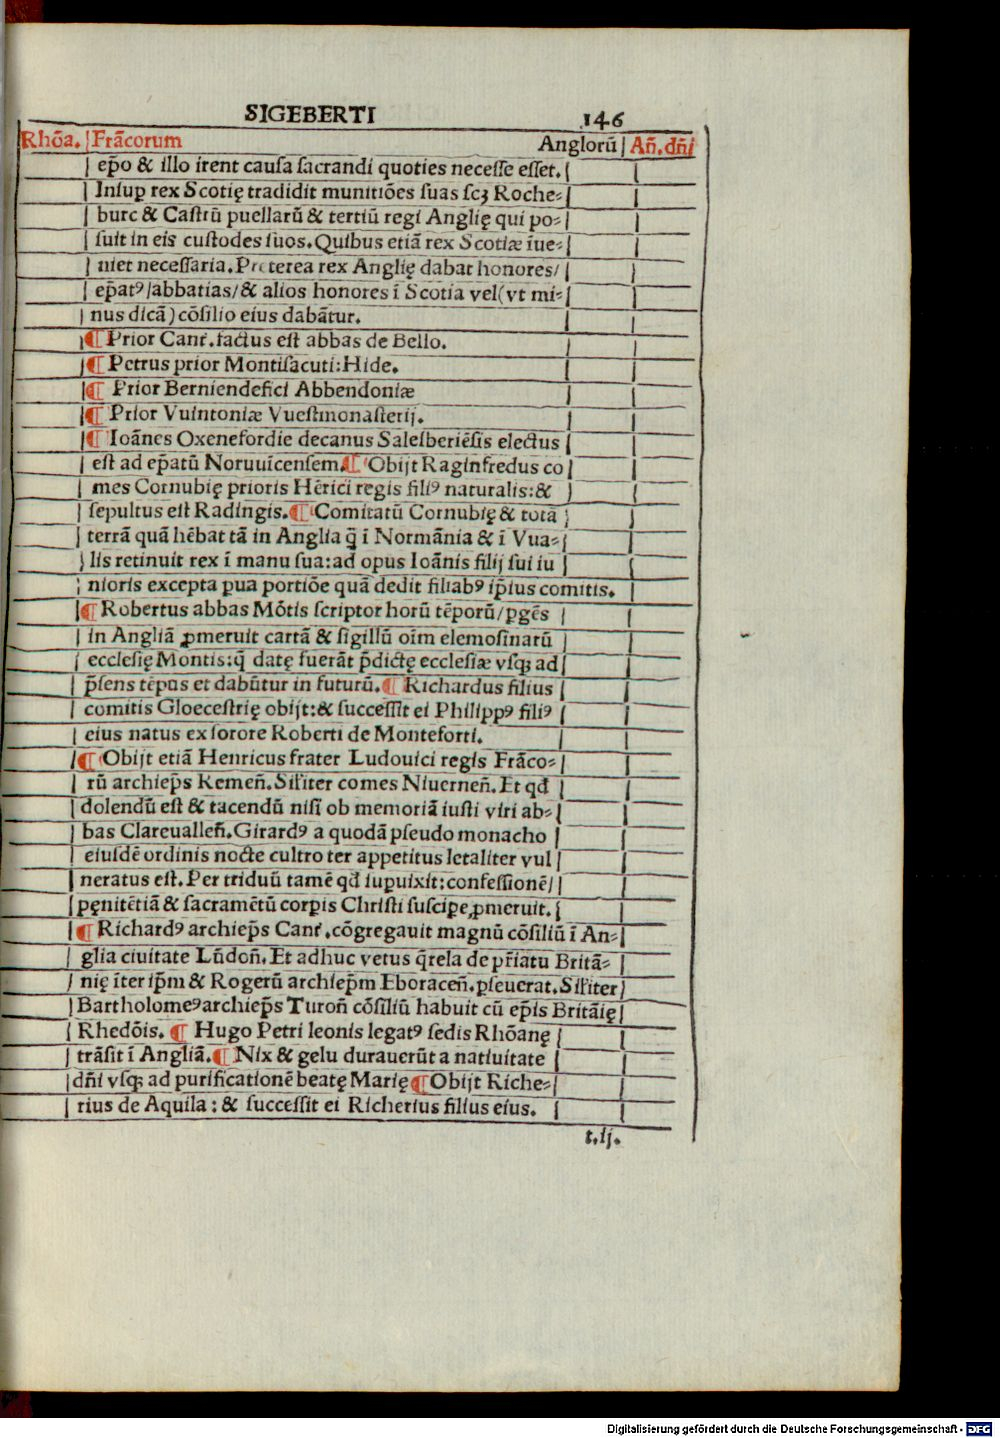 SIGEBERTI 146
Rhōa. Frācorum Anglorū Añ.dñi
ep̄o & illo irent cauſa ſacrandi quoties neceſſe eſſet.
Inſup rex Scotię tradidit munitiões ſuas ſcꝫ Roche⸗
burc & Caſtrū puellarū & tertiū regi Anglię qui po⸗
ſuit in eis cuſtodes ſuos. Quibus etiā rex Scotiæ īue⸗
niet neceſſaria. Preterea rex Anglię dabat honores/
ep̄atꝰ/abbatias/& alios honores ī Scotia vel(vt mi⸗
nus dicā) cōſilio eius dabātur.
¶ Prior Cant̄. factus eſt abbas de Bello.
¶ Petrus prior Montiſacuti: Hide.
¶ Prior Berniendefici Abbendoniæ
¶ Prior Vuintoniæ Vueſtmonaſterij.
¶ Ioānes Oxenefordie decanus Saleſberiēſis electus
eſt ad ep̄atū Noruuicenſem. ¶ Obijt Raginfredus co
mes Cornubię prioris Hērici regis filiꝰ naturalis: &
ſepultus eſt Radingis. ¶ Comitatū Cornubię & totā
terrā quā hēbat tā in Anglia q̄ ī Normānia & ī Vua⸗
lis retinuit rex ī manu ſua: ad opus Ioānis filij ſui iu
nioris excepta ꝑua portiōe quā dedit filiabꝰ ip̄ius comitis.
¶ Robertus abbas Mōtis ſcriptor horū tēporū/ꝑgēs
in Angliā ꝓmeruit cartā & ſigillū oīm elemoſinarū
ecclesię Montis: q̄ datę fuerāt p̄dictę ecclesiæ vſqꝫ ad
p̄ſens tēpus et dabūtur in futurū. ¶ Richardus filius
comitis Gloeceſtrię obijt: & ſucceſſit ei Philippꝰ filiꝰ
eius natus ex ſorore Roberti de Monteforti.
¶ Obijt etiā Henricus frater Ludouici regis Frāco⸗
rū archiep̄s Remeñ. Sil̄iter comes Niuerneñ. Et qđ
dolendū eſt & tacendū niſi ob memoriā iuſti viri ab⸗
bas Clareualleñ. Girardꝰ a quodā pſeudo monacho
eiuſdē ordinis nocte cultro ter appetitus letaliter vul
neratus eſt. Per triduū tamē qđ ſuꝑuixit: confeſſionē/
pęnitētiā & ſacramētū corꝑis Chriſti ſuſciꝑe ꝓmeruit.
¶ Richardꝰ archiep̄s Cant̄. cōgregauit magnū cōſiliū ī An⸗
glia ciuitate Lūdoñ. Et adhuc vetus q̄rela de pr̄iatu Britā⸗
nię īter ip̄m & Rogerū archiep̄m Eboraceñ. ꝑſeuerat. Sil̄iter
Bartholomeꝰ archiep̄s Turoñ cōſiliū habuit cū ep̄is Britāię
Rhedōis. ¶ Hugo Petri leonis legatꝰ ſedis Rhōanę
trāſit ī Angliā. ¶ Nix & gelu durauerūt a natiuitate
dñi vſqꝫ ad purificationē beatę Marię ¶ Obijt Riche⸗
rius de Aquila: & ſucceſſit ei Richerius filius eius.
t.ij.
Digitalisierung gefördert durch die Deutsche Forschungsgemeinschaft - DFG